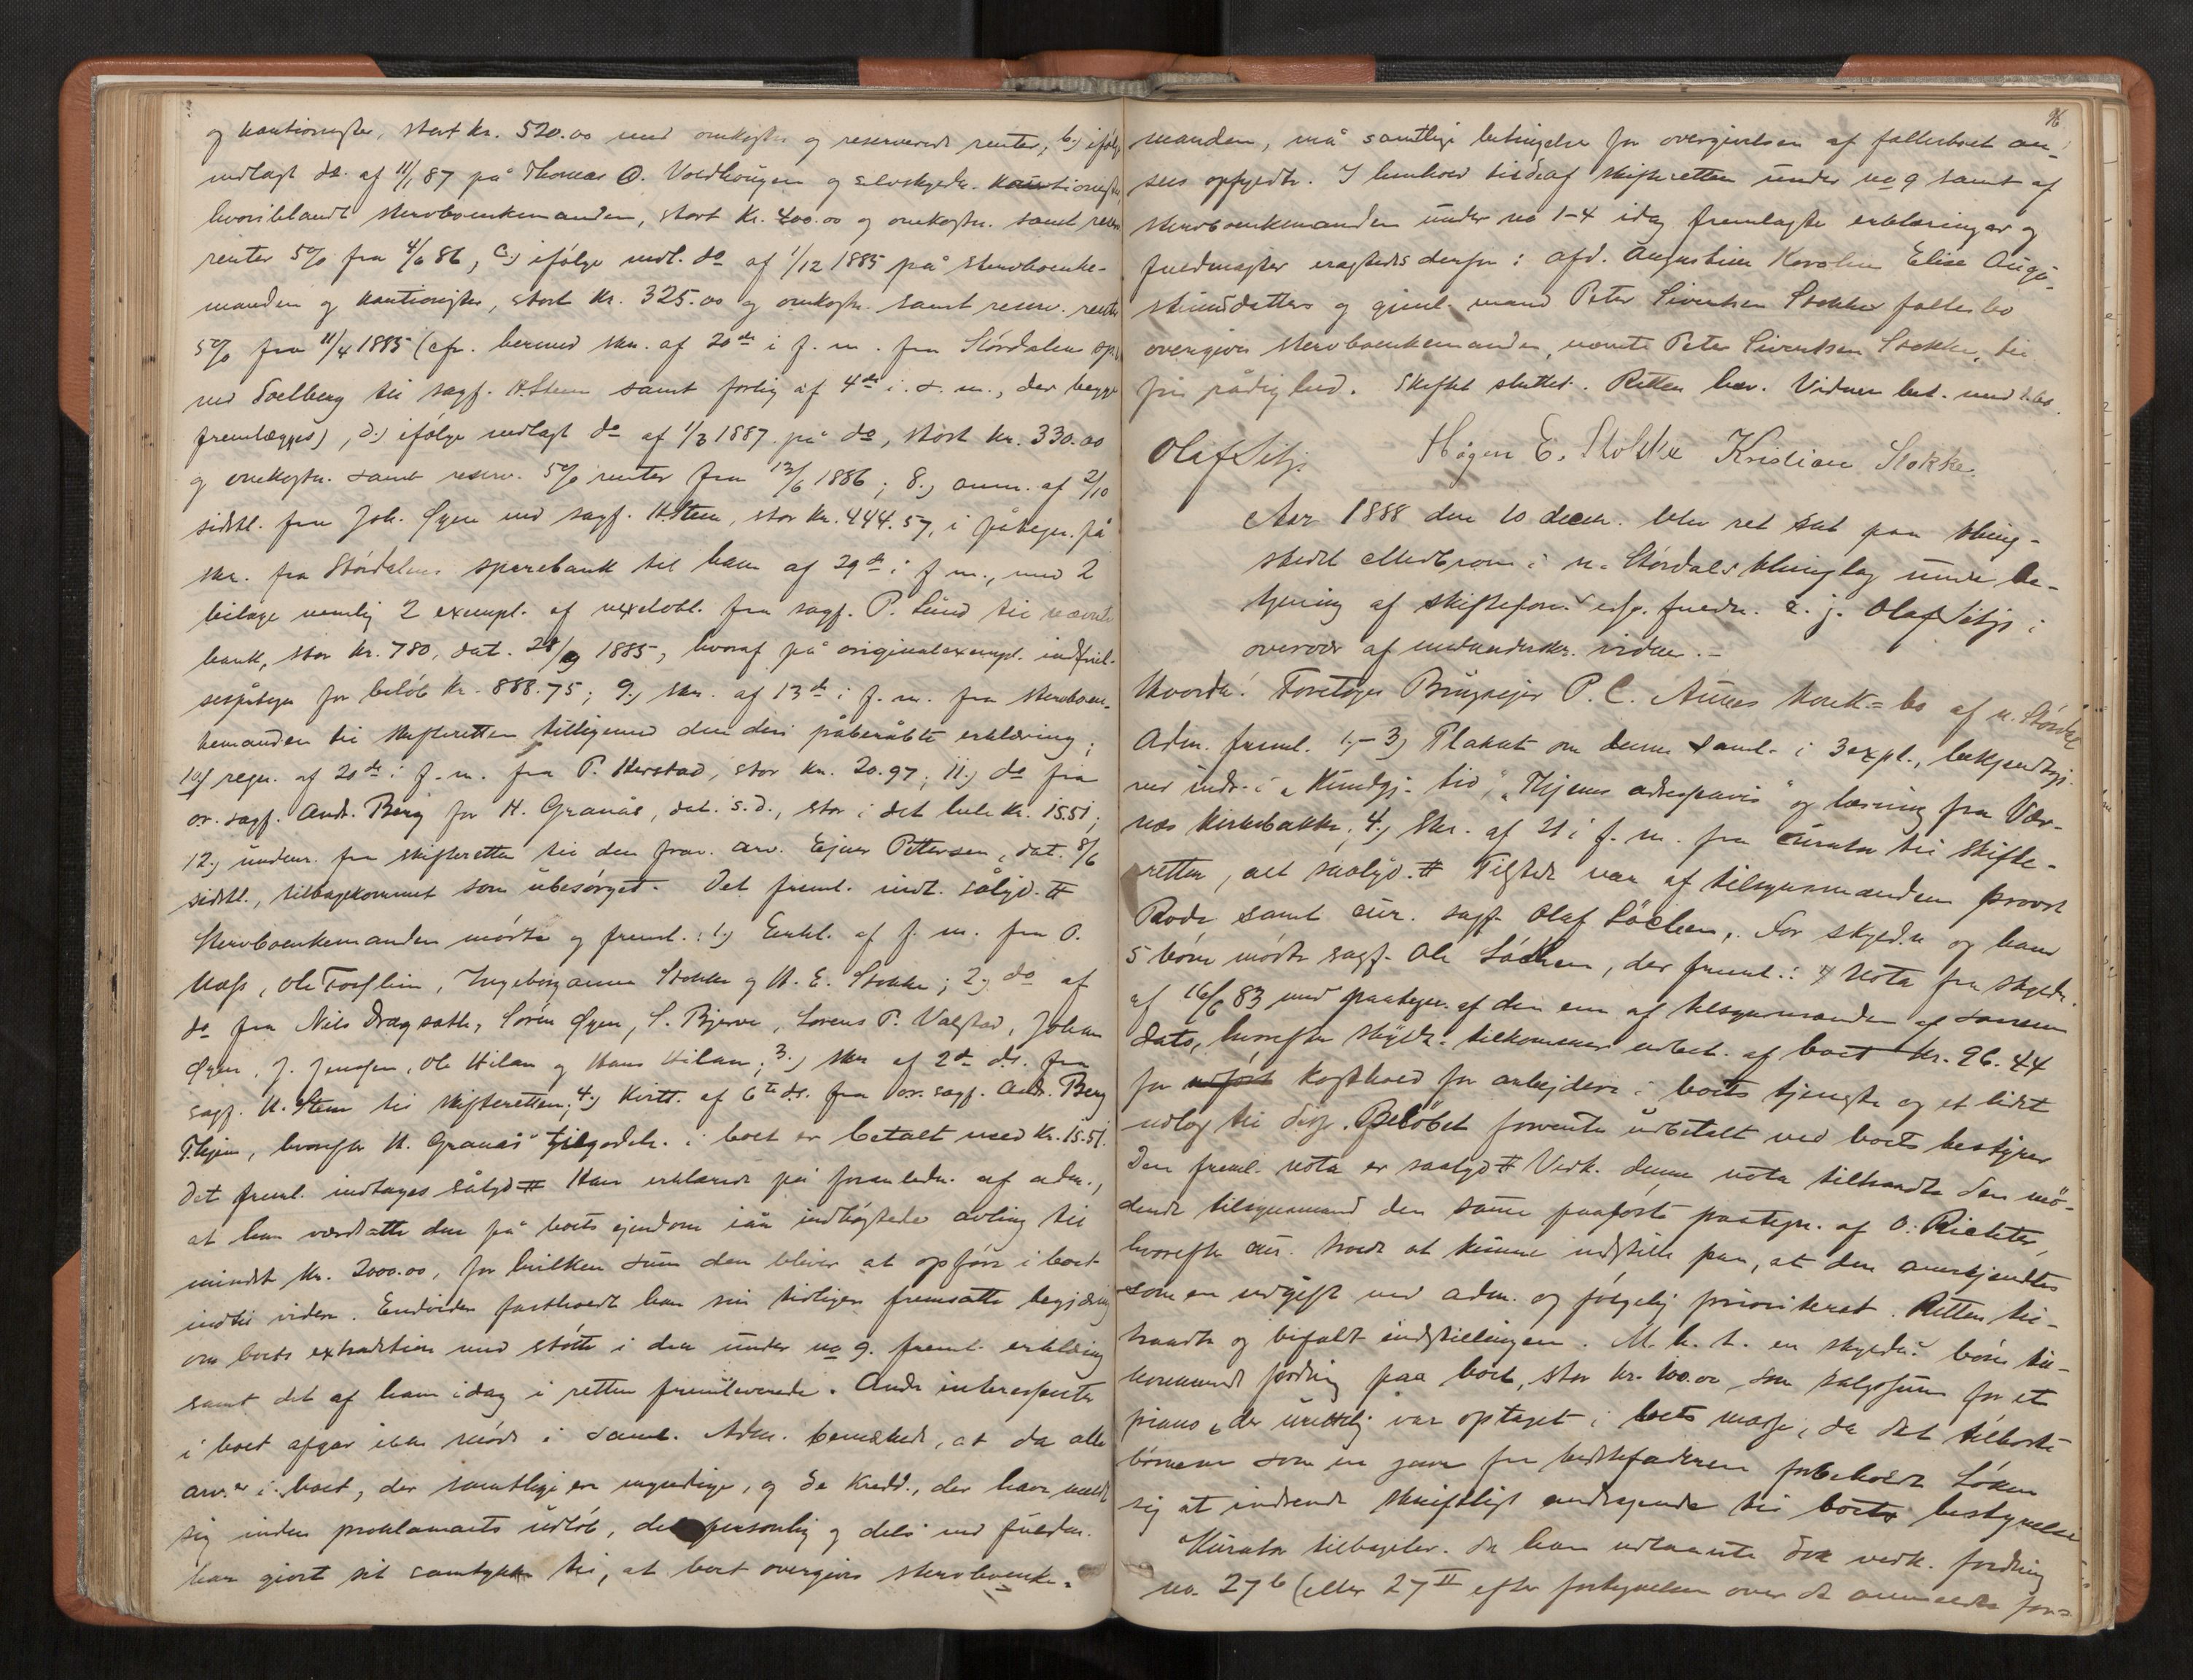 og kautionister, stort kr. 520.00 med omkostn. og reserverede renter, b.) ifølge
indlagt do. af 11/1 87 på Thomas O. Voldhaugen og selvskyldn. kautionister,
hvoriblandt stervboenkemanden, stort kr. 400.00 og omkostn. samt reserv.
renter 5% fra 4/6 86, c.) ifølge indl. do af 1/12 1885 på stervboenke-
manden og kautionister, stort kr. 325.00 og omkostn. samt reserv. renter
5% fra 11/4 1885 (cfr. hermed skr. af 20de i f. m. fra Stördalens
ved Soelberg til sagf. H. Steen samt forlig af 4de i s. m., der begge
fremlægges), d.) ifølge indlagt do af 1/3 1887 på do, stort kr. 330.00
og omkostn. samt reserv. 5% renter fra 12/6 1886; 8.) anm. af 2/10
sidstl. fra Joh. Öyen ved sagf. H. Steen, stor kr. 444.57, i påtegn. på
skr. fra Stördalens sparebank til ham af 29de i f. m., med 2
bilage nemlig 2 exempl. af vexelobl. fra sagf. P. Lund til nævnte
bank, stor kr. 780, dat. 28/9 1885, hvoraf på originalexempl. indfriel-
sespåtegn for beløb kr. 888.75; 9.) skr. af 13de i f. m. fra stervboen-
kemanden til skifteretten tilligemed den deri påberåbte erklæring;
10.) regn. af 20de i f. m. fra P. Herstad, stor kr. 20.97; 11.) do fra
or. sagf. Andr. Berg for H. Granås, dat. s. d., stor i det hele kr. 15.51;
12.) underr. fra skifteretten til den frav. arv. Ejner Pettersen, dat. 8/6
sidstl., tilbagekommet som ubesörget. Det freml. indt. sålyd. #
Stervboenkemanden mödte og freml.: 1.) Erkl. af f. m. fra O.
Mass, Ole Forslien, Ingeborganna Stokke og H. E. Stokke; 2.) do af
do fra Nils Drægsatte, Sören Öyen, S. Bjerve, Lorens P. Valstad, Johan
Öyen, J. Jensen, Ole Hilan og Hans Hilan; 3.) skr af 2de ds. fra
sagf. H. Steen til skifteretten; 4.) Kvitt. af 6te ds. fra or. sagf. Andr. Berg
Thjem, hvorefter H. Granås' tilgodeh. i boet er betalt med kr. 15.51.
Det freml. indtages sålyd # Han erklærede på foranledn. af adm.,
at han værdsatte den på boets ejendom iår indhøstede avling til
mindst kr. 2000.00, for hvilken sum den bliver at opføre i boet
indtil videre. Endvidere fastholdt han sin tidligere fremsatte begjæring
om boets extradition med støtte i den under no 9. freml. erklæring
samt det af ham idag i retten fremleverede. Andre interesserte
i boet afgav ikke møde i saml. Adm. bemærkede, at da alle
arv.er i boet, der samtlige er myndige, og de kredd., der have meldt
sig inden proklamaets udlöb, dels personlig og dels ved fuldm.
har givet sit samtykke til, at boet overgives stervboenke-
96
manden, må samtlige betingelser for overgivelsen af fællesboet an-
sees opfyldte. I henhold til de af skifteretten under no 9 samt af
stervboenkemanden under no 1-4 idag fremlagte erklæringer og
fuldmagter eragtedes derfor: afd. Augustine Karoline Elise Augu-
stinusdatters og gjenl. mand Peter Sivertsen Stokkes fællesbo
overgives stervboenkemanden, nævnte Peter Sivertsen Stokke, til
fri rådighed. Skiftet sluttet. Retten hæv. Vidner bet. med
Olaf Sitje Hågen E. Stokke Kristian Stokke.
Aar 1888 den 10 decem. blev ret sat paa thing-
stedet Medbroen i n. Stördals thinglag under be-
tjening af skifteforv. ved fuldm. e. j. Olaf Sitje i
overvær af medunderskr. vidner.-
Hvorda! Foretoges Brugsejer P. C. Aunes konk.-bo af n. Stördal
Adm. freml. 1,-3) Plakat om denne saml. i 3 expl., bekjendtgj.
ved indr. i "Kundgj. tid", "Thjems adresseavis" og læsning fra Vær-
næs kirkebakke; 4.) Skr. af 21 i f. m. fra curator til skifte-
retten, alt saalyd. # Tilstede var af tilsynsmændene provst
Rode samt cur. sagf. Olaf Löchen. For skyldn. og hans
5 börn mödte sagf. Ole Löchen, der freml.: 1/ Nota fra skyldn.
af 16/6 83 med paategn. af den ene af tilsynsmændene af samme
dato, hvorefter skyldn. tilkommer udbet. af boet kr. 96.44
for kosthold for arbejdere i boets tjeneste og et lidet
udlæg til Beløbet forventes udbetalt ved boets bestyrer
Den freml. nota er saalyd # Vedk. denne nota tilhændte den mö-
dende tilsynsmand den samme paaførte paategn. af O. Richter,
hvorefter cur. troede at kunne indstille paa, at den anerkjendtes
som en udgift ved adm. og følgelig prioriteret. Retten til-
traadte og bifaldt indstillingen. M. h. t. en skyldn.s börn til-
kommende fordring paa boet, stor kr. 100.00, som salgssum for et
piano, der urettelig var optaget i boets masse, da det tilhörte
börnene som en gave fra bedstefaderen forbeholdt Löken
sig at indsende skriftligt andragende til boets bestyrelse
Kurator tilbagelev. de ham udlaante dok vedk. fordring
no. 27 b (eller 27 II efter fortegnelsen over de anmeldte for-